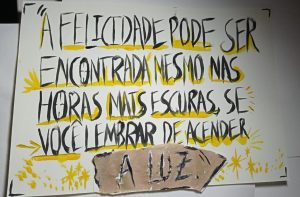 "A FELICIDADE PODE SER
ENCONTRADA MESMO NAS
HORAS MAIS ESCURAS, SE
VOCÊ LEMBRAR DE ACENDER
A LUZ"